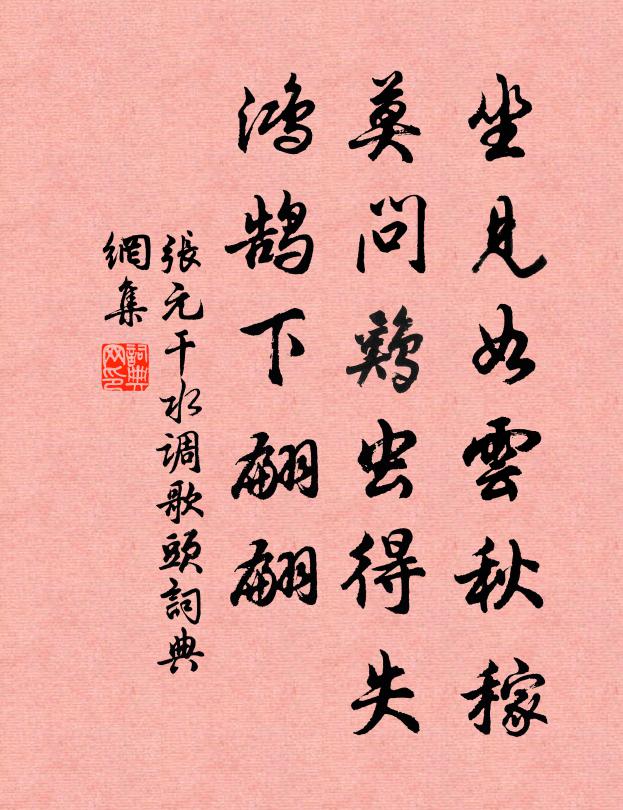 坐見如雲秋稼
莫問鷄虫得失
鴻鹄下翩翩
張元干水调歌頭詞典
網集
詞典网印